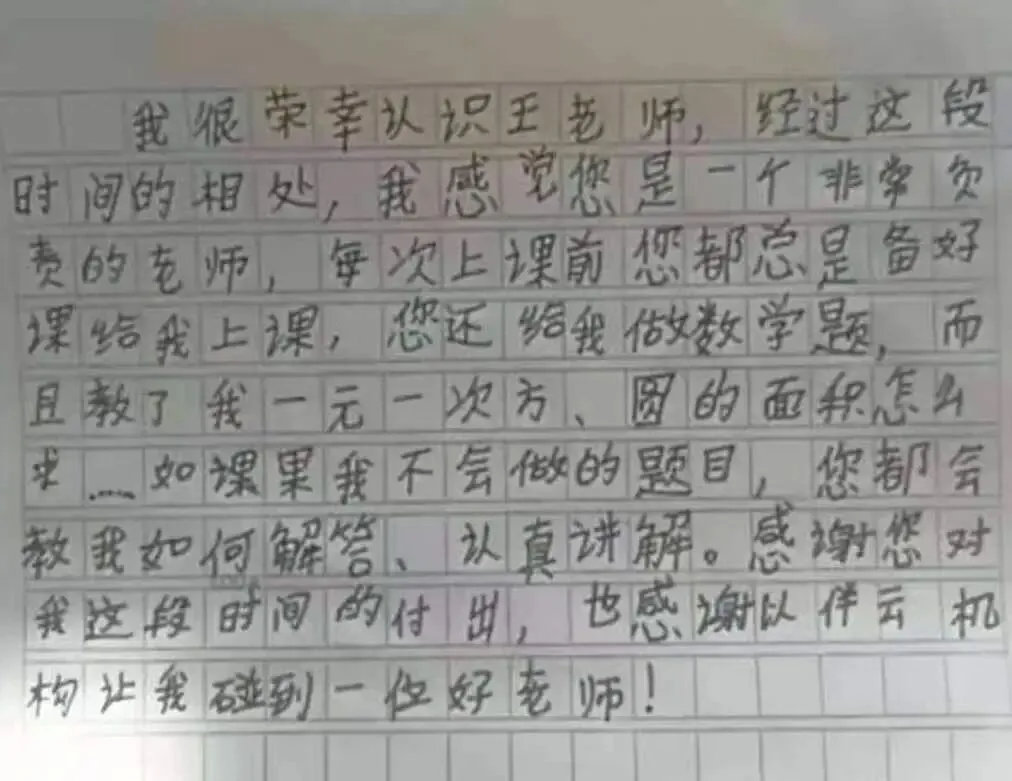 我很荣幸认识王老师，经过这段
时间的相处，我感觉您是一个非常负
责的老师，每次上课前您都总是备好
课给我上课，您还给我做数学题，而
且教了我一元一次方、圆的面积怎么
求……如课果我不会做的题目，您都会
教我如何解答、认真讲解。感谢您对
我这段时间的付出，也感谢以伴云机
构让我碰到一位好老师！